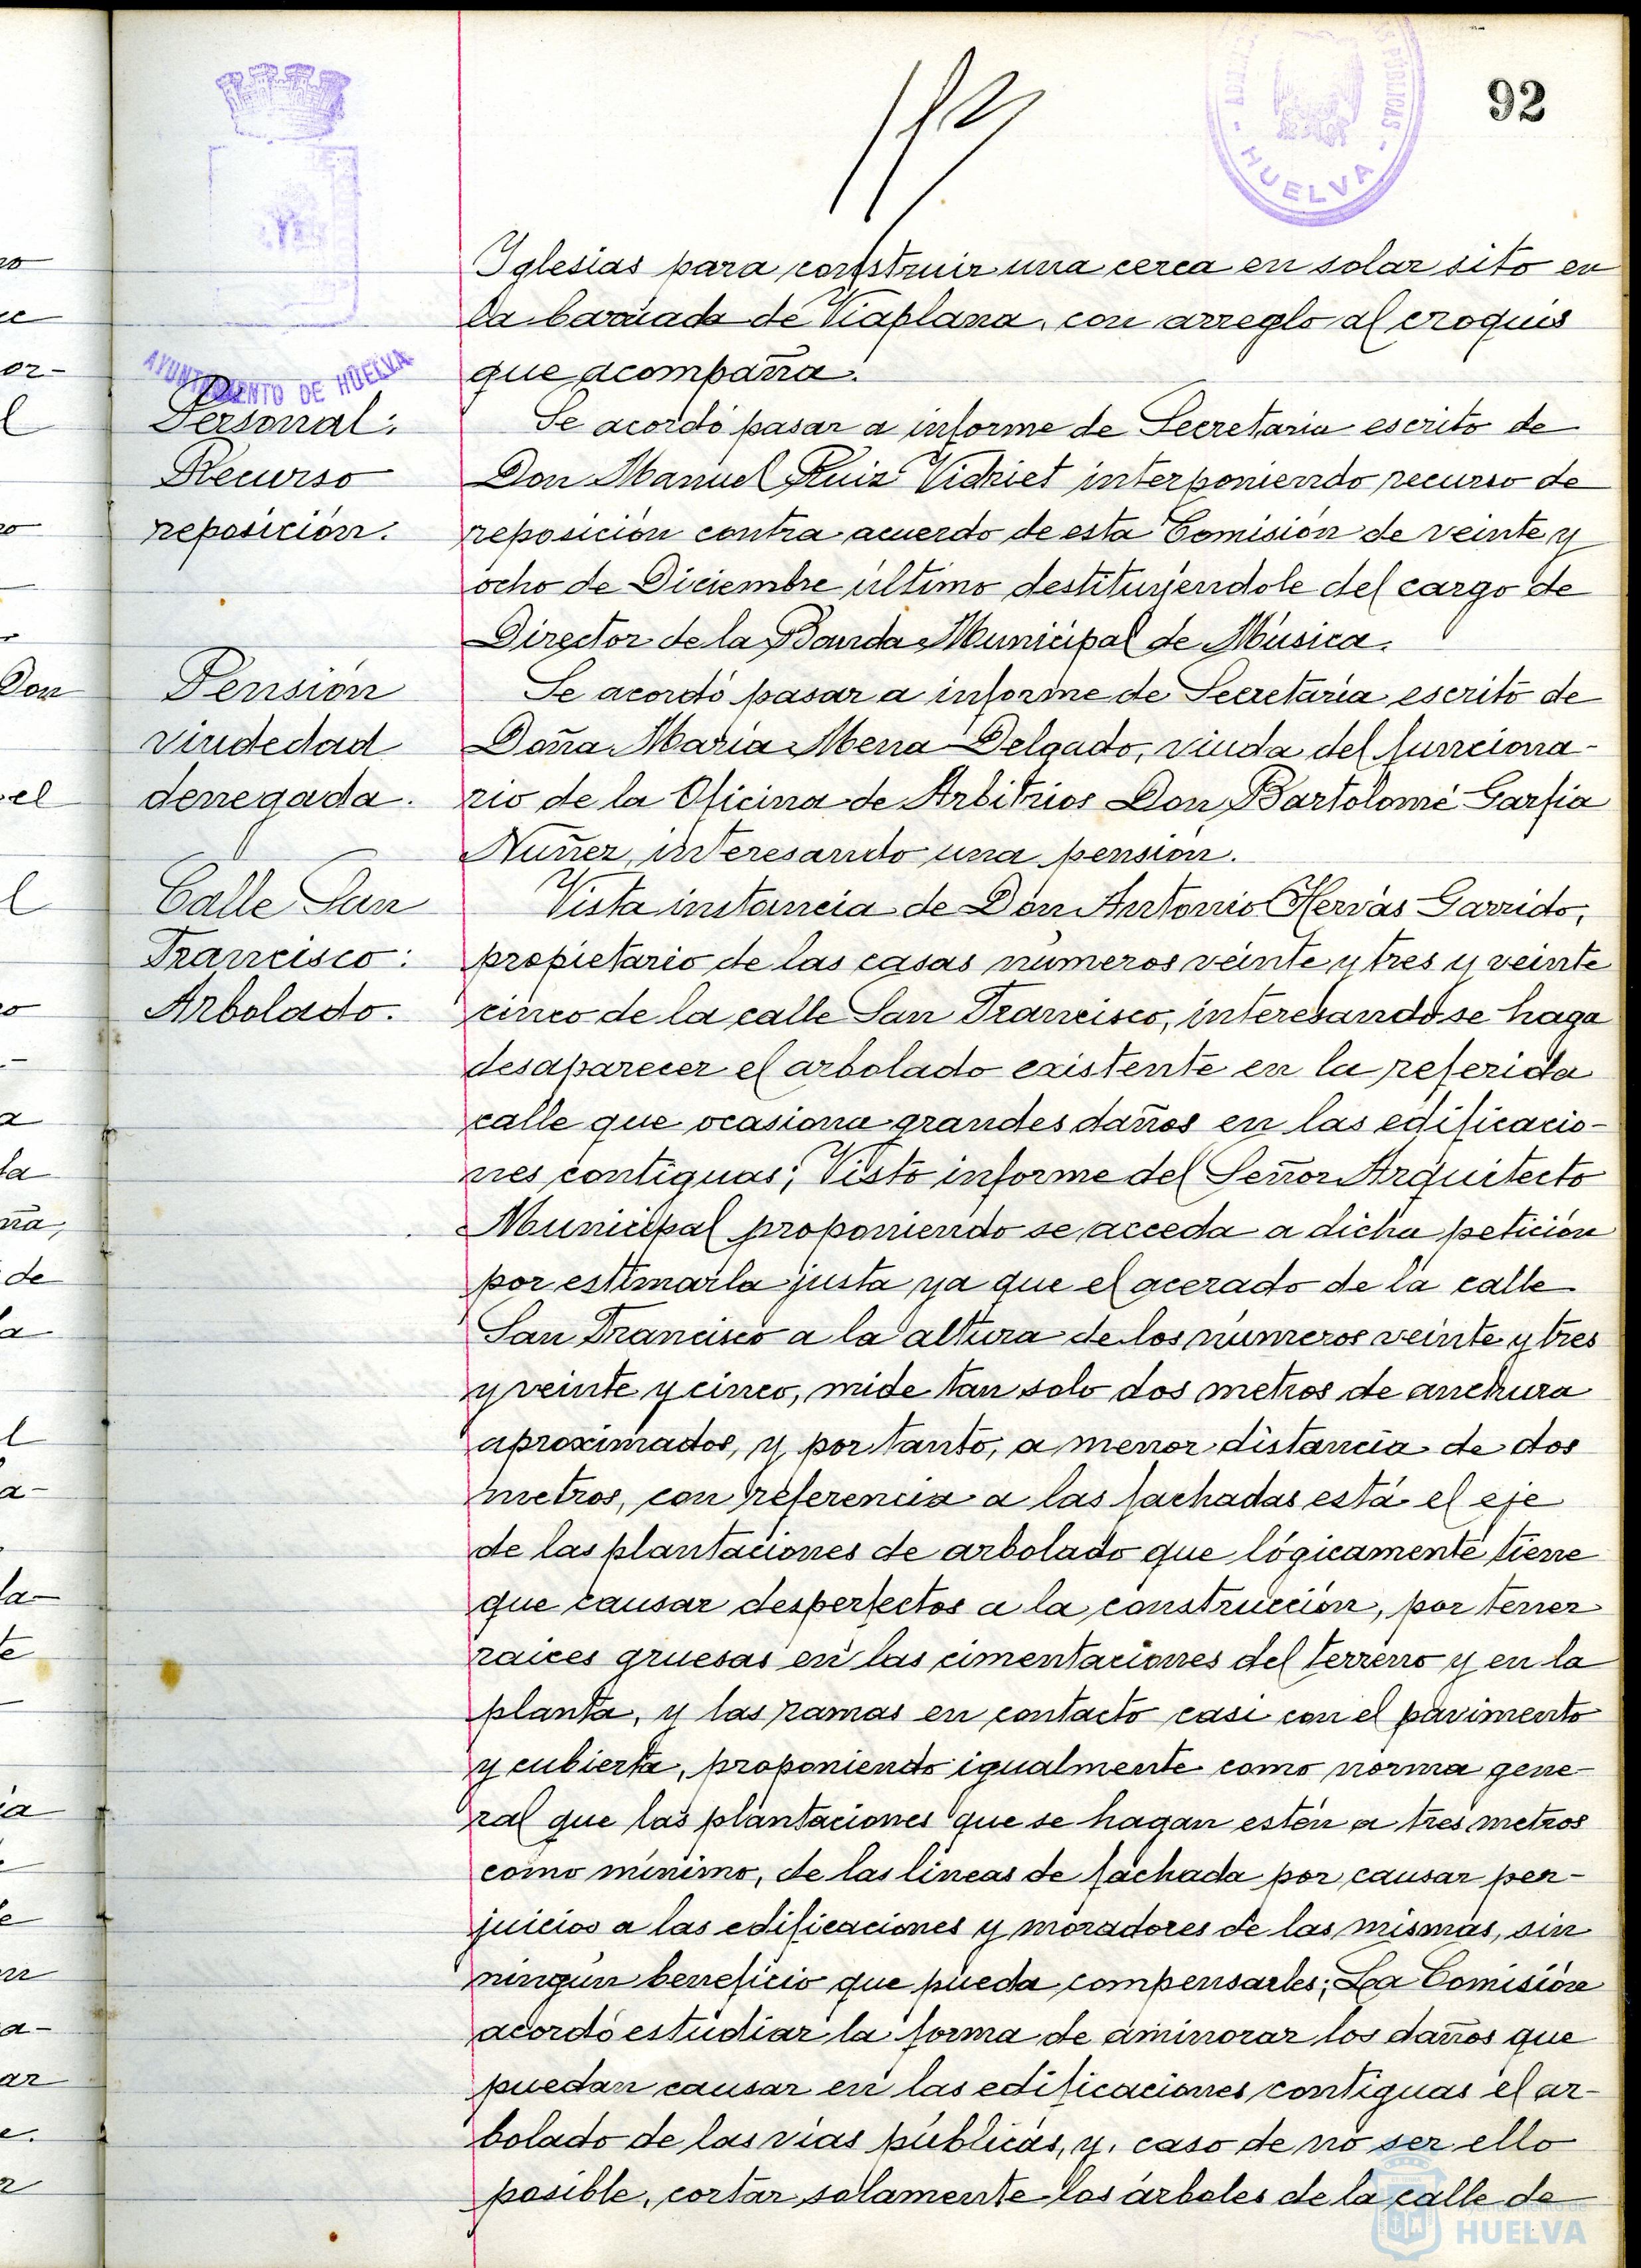 92
HUELVA
AYUNTAMIENTO DE HUELVA
Iglesias para construir una cerca en solar sito en
la barriada de Viaplana, con arreglo al croquis
que acompaña.
Personal:
Recurso
reposición.
Se acordó pasar a informe de Secretaria escrito de
Don Manuel Ruiz Vidriet interponiendo recurso de
reposición contra acuerdo de esta Comisión de veinte y
ocho de Diciembre último destituyendole del cargo de
Director de la Banda Municipal de Música.
Pensión
viudedad
denegada.
Se acordó pasar a informe de Secretaría escrito de
Doña María Mena Delgado, viuda del funciona-
rio de la Oficina de Arbitrios Don Bartolomé Garfia
Nuñez, interesando una pensión.
Calle San
Francisco:
Arbolado.
Vista instancia de Don Antonio Hervás Garrido,
propietario de las casas números veinte y tres y veinte
cinco de la calle San Francisco, interesando se haga
desaparecer el arbolado existente en la referida
calle que ocasiona grandes daños en las edificacio-
nes contiguas; Visto informe del Señor Arquitecto
Municipal proponiendo se acceda a dicha petición
por estimarla justa ya que el acerado de la calle
San Francisco a la altura de los números veinte y tres
y veinte y cinco, mide tan solo dos metros de anchura
aproximados, y por tanto, a menor distancia de dos
metros, con referencia a las fachadas está el eje
de las plantaciones de arbolado que lógicamente tiene
que causar desperfectos a la construcción, por tener
raices gruesas en las cimentaciones del terreno y en la
planta, y las ramas en contacto casi con el pavimento
y cubierta, proponiendo igualmente como norma gene-
ral que las plantaciones que se hagan estén a tres metros
como mínimo, de las líneas de fachada por causar per-
juicios a las edificaciones y moradores de las mismas, sin
ningún beneficio que pueda compensarles; La Comisión
acordó estudiar la forma de aminorar los daños que
puedan causar en las edificaciones contiguas el ar-
bolado de las vias públicas, y, caso de no ser ello
posible, cortar solamente los árboles de la calle de
Ayuntamiento de
HUELVA